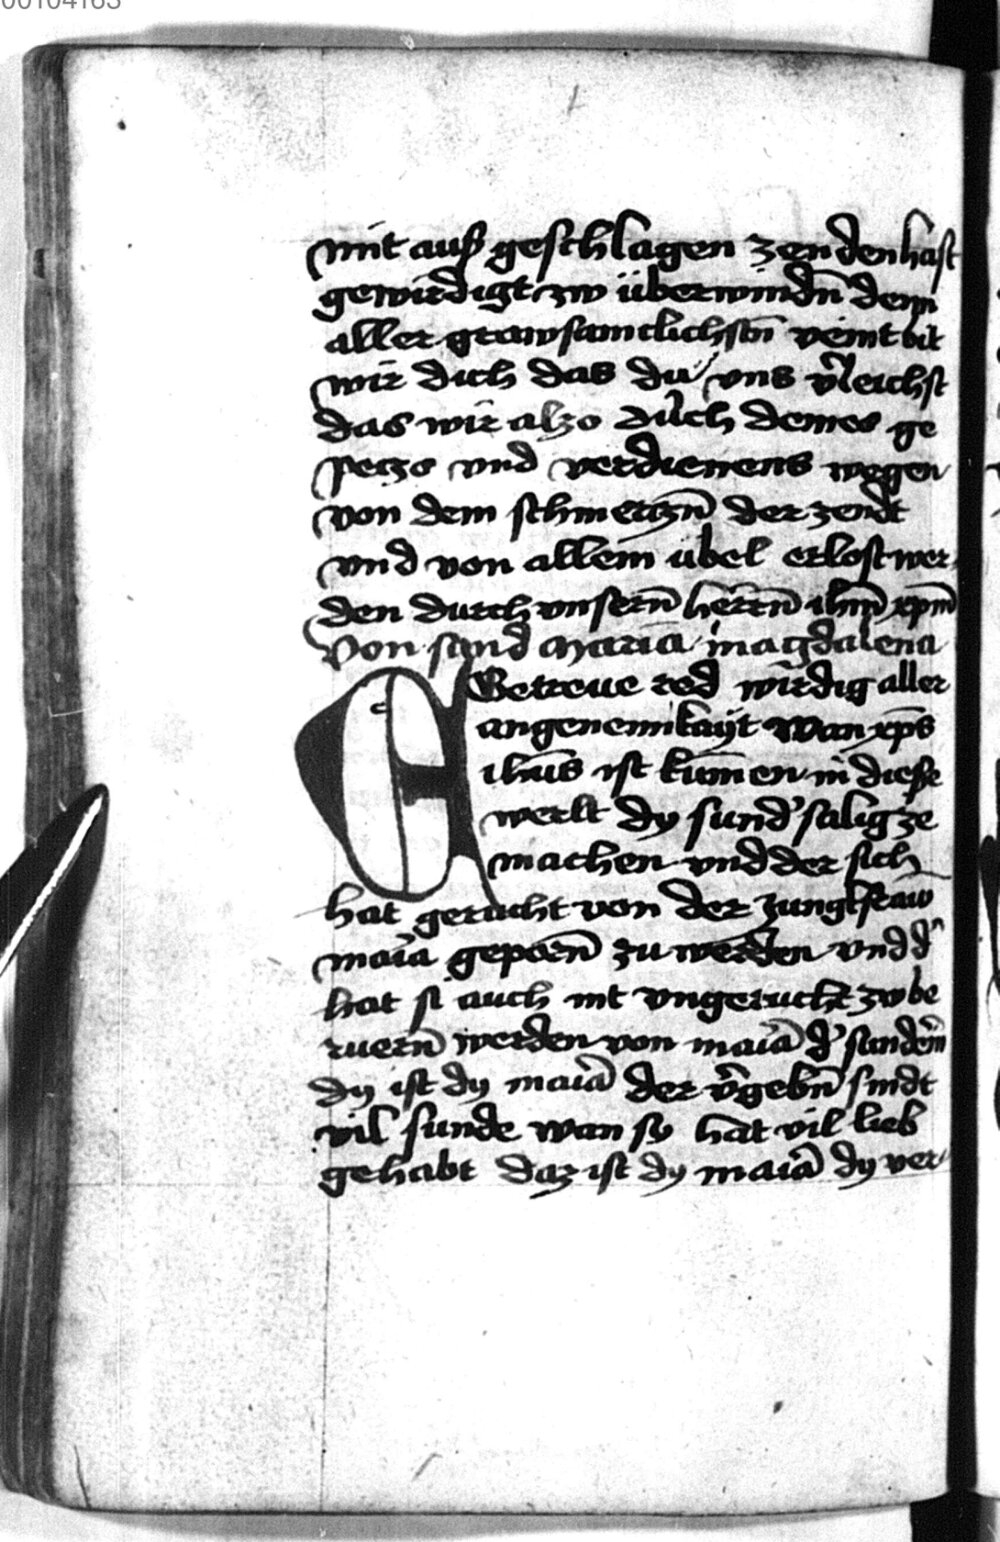 00104163
mit auß geschlagen zenden hast
gewirdigt zw überwindn̄ denn
aller grawsamclichstn̄ veint bit
wir dich das du vns v̓leichst
das wir alzo durch deines ge
petzs vnd verdienens wegen
von dem schmertzn̄ der zendt
vnd von allem übel erlost wer
den durch vnsern̄ herrn̄ ihm̄ xp̄m
Von sand maria magdalena
Getreue red wirdig aller
angenemikayt Wan xp̄s
ihūs ist kumen in diese
werlt dy sund' salig ze
machen vnd der sich
hat geruucht von der Jungkfraw
maīa geporn̄ zu werden vnd d'
hat si auch nit vngeruucht zw be
ruern̄ werden von maīa d' sunderin̄
dy ist dy maīa der v̓gebn̄ sindt
vil sunde wan sy hat vil lieb
gehabt daz ist dy maīa dy ver